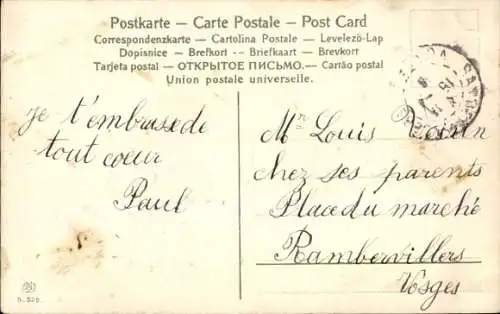 Postkarte – Carte Postale – Post Card
Correspondenzkarte – Cartolina Postale – Levelezö-Lap
Dopisnice – Brefkort – Briefkaart – Brevkort
Tarjeta postal – ОТКРЫТОЕ ПИСЬМО. – Cartão postal
Union postale universelle.
je t'embrasse de
tout coeur
Paul
Mr Louis
chez ses parents
Place du marché
Rambervillers
Vosges